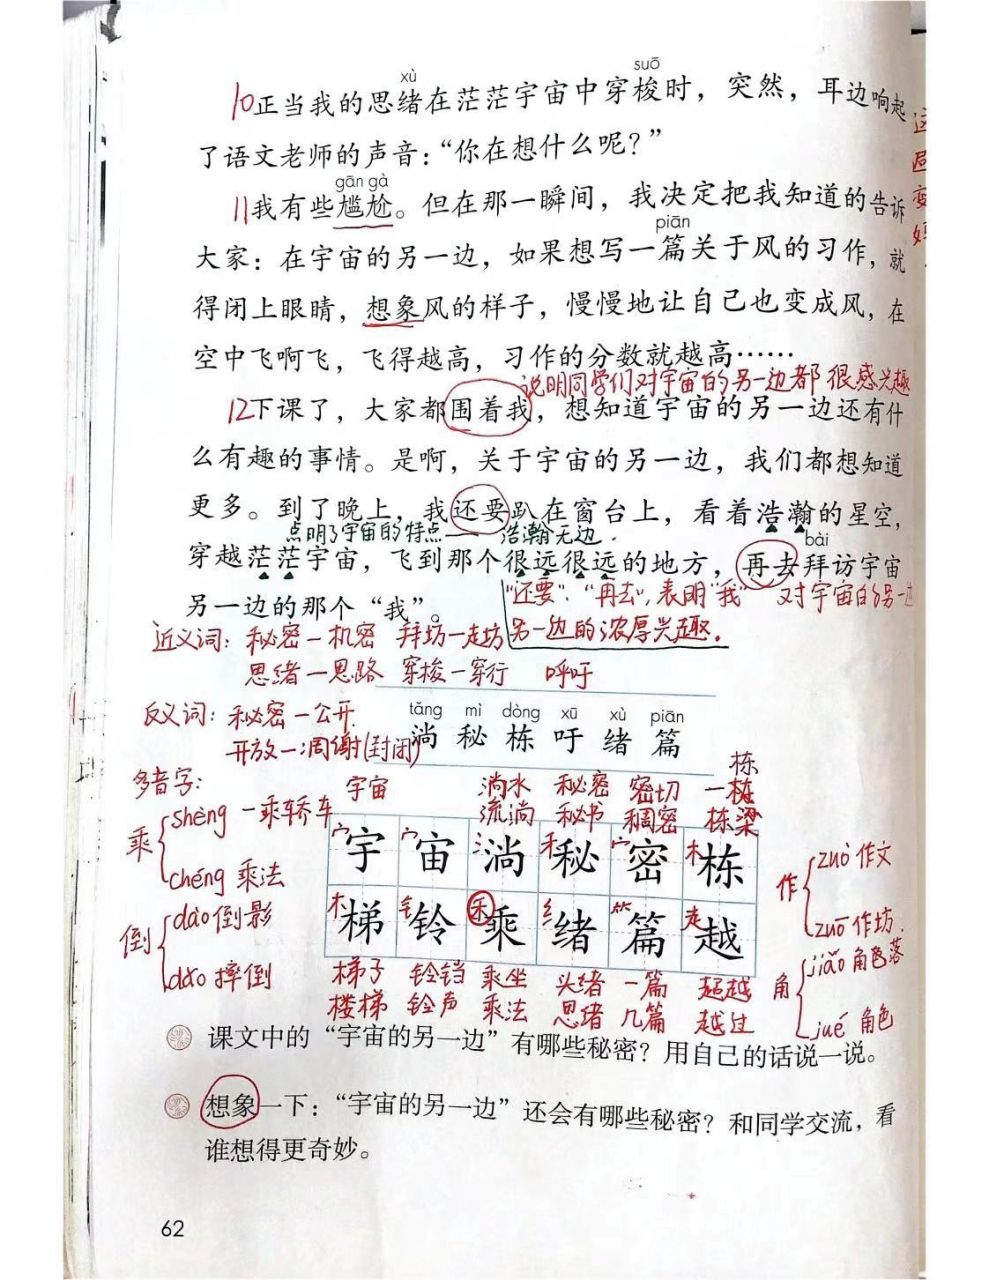 xù suō
10正当我的思绪在茫茫宇宙中穿梭时，突然，耳边响起
了语文老师的声音：“你在想什么呢？”
gān gà
11我有些尴尬。但在那一瞬间，我决定把我知道的告诉
piān
大家：在宇宙的另一边，如果想写一篇关于风的习作，就
得闭上眼睛，想象风的样子，慢慢地让自己也变成风，在
空中飞啊飞，飞得越高，习作的分数就越高……
说明同学们对宇宙的另一边都很感兴趣
12下课了，大家都围着我，想知道宇宙的另一边还有什
么有趣的事情。是啊，关于宇宙的另一边，我们都想知道
更多。到了晚上，我还要趴在窗台上，看着浩瀚的星空，
点明了宇宙的特点——浩瀚无边.
bài
穿越茫茫宇宙，飞到那个很远很远的地方，再去拜访宇宙
另一边的那个“我”。
“还要”、“再去”，表明“我”对宇宙的另一边
另一边的浓厚兴趣.
近义词：秘密—机密 拜坊—走坊
思绪—思路 穿梭—穿行 呼吁
反义词：秘密—公开
开放—凋谢(封闭)
tǎng mì dòng xū xù piān
淌 秘 栋 吁 绪 篇
多音字：
宇宙 淌水 秘密 密切 一栋
栋
流淌 秘书 稠密 栋梁
乘 shèng 一乘轿车
chéng 乘法
宀宇 宀宙 氵淌 禾秘 宀密 木栋
作 zuò 作文
zuō 作坊.
倒 dào 倒影
dǎo 摔倒
木梯 钅铃 禾乘 纟绪 ⺮篇 走越
角 jiǎo 角落
jué 角色
梯子 铃铛 乘坐 头绪 一篇 超越
楼梯 铃声 乘法 思绪 几篇 越过
课文中的“宇宙的另一边”有哪些秘密？用自己的话说一说。
想象一下：“宇宙的另一边”还会有哪些秘密？和同学交流，看
谁想得更奇妙。
62